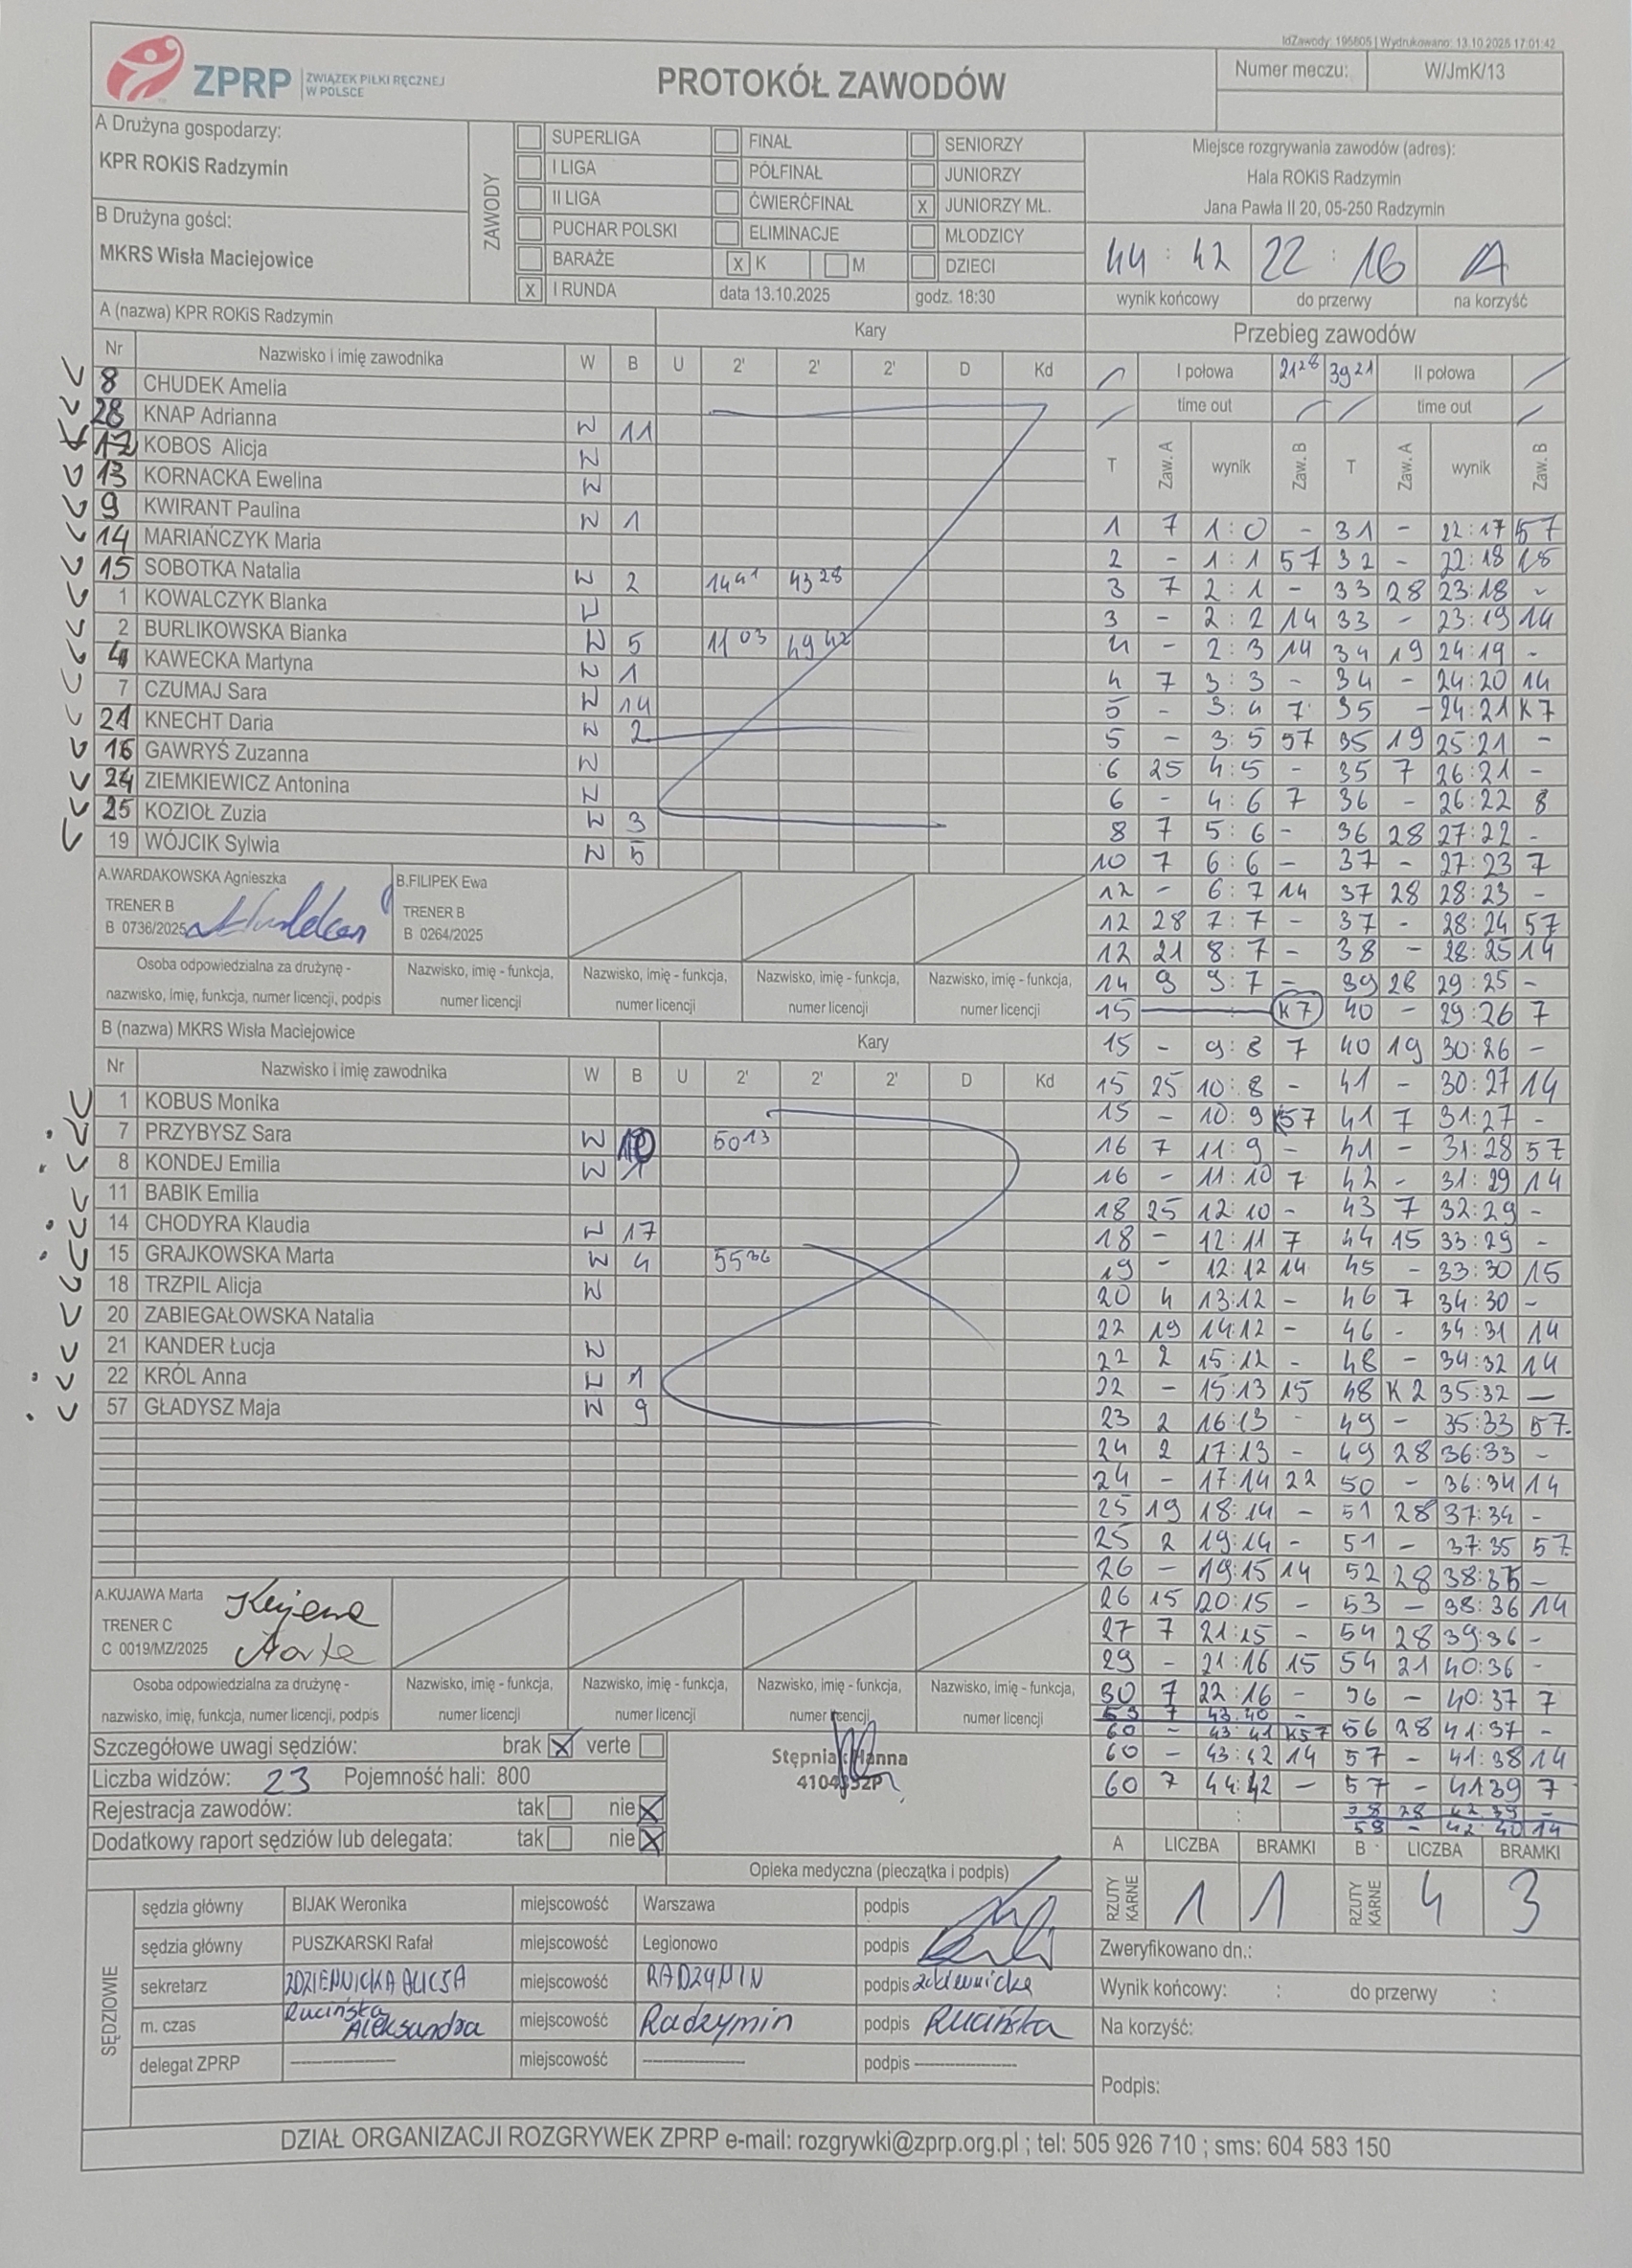 IdZawody: 195805 | Wydrukowano: 13.10.2025 17:01:42
ZPRP ZWIĄZEK PIŁKI RĘCZNEJ W POLSCE
PROTOKÓŁ ZAWODÓW
Numer meczu: W/JmK/13
A Drużyna gospodarzy:
KPR ROKiS Radzymin
B Drużyna gości:
MKRS Wisła Maciejowice
ZAWODY
SUPERLIGA FINAŁ SENIORZY
I LIGA PÓŁFINAŁ JUNIORZY
II LIGA ĆWIERĆFINAŁ X JUNIORZY MŁ.
PUCHAR POLSKI ELIMINACJE MŁODZICY
BARAŻE X K M DZIECI
X I RUNDA data 13.10.2025 godz. 18:30
Miejsce rozgrywania zawodów (adres):
Hala ROKiS Radzymin
Jana Pawła II 20, 05-250 Radzymin
44 : 42 22 : 16 A
wynik końcowy do przerwy na korzyść
A (nazwa) KPR ROKiS Radzymin Kary
Nr Nazwisko i imię zawodnika W B U 2' 2' 2' D Kd
8 CHUDEK Amelia
28 KNAP Adrianna W 11
12 KOBOS Alicja W
13 KORNACKA Ewelina W
9 KWIRANT Paulina W 1
14 MARIAŃCZYK Maria
15 SOBOTKA Natalia W 2 14 41 43 28
1 KOWALCZYK Blanka W
2 BURLIKOWSKA Bianka W 5 11 03 49 42
4 KAWECKA Martyna W 1
7 CZUMAJ Sara W 14
21 KNECHT Daria W 2
16 GAWRYŚ Zuzanna W
24 ZIEMKIEWICZ Antonina W
25 KOZIOŁ Zuzia W 3
19 WÓJCIK Sylwia W 5
A.WARDAKOWSKA Agnieszka B.FILIPEK Ewa
TRENER B TRENER B
B 0736/2025 B 0264/2025
Osoba odpowiedzialna za drużynę - nazwisko, imię, funkcja, numer licencji, podpis
Nazwisko, imię - funkcja, numer licencji
Nazwisko, imię - funkcja, numer licencji
Nazwisko, imię - funkcja, numer licencji
Nazwisko, imię - funkcja, numer licencji
B (nazwa) MKRS Wisła Maciejowice Kary
Nr Nazwisko i imię zawodnika W B U 2' 2' 2' D Kd
1 KOBUS Monika
7 PRZYBYSZ Sara W 10 50 13
8 KONDEJ Emilia W 1
11 BABIK Emilia
14 CHODYRA Klaudia W 17
15 GRAJKOWSKA Marta W 4 55 36
18 TRZPIL Alicja W
20 ZABIEGAŁOWSKA Natalia
21 KANDER Łucja W
22 KRÓL Anna W 1
57 GŁADYSZ Maja W 9
A.KUJAWA Marta Kujawa
TRENER C Marta
C 0019/MZ/2025
Osoba odpowiedzialna za drużynę - nazwisko, imię, funkcja, numer licencji, podpis
Nazwisko, imię - funkcja, numer licencji
Nazwisko, imię - funkcja, numer licencji
Nazwisko, imię - funkcja, numer licencji
Nazwisko, imię - funkcja, numer licencji
Przebieg zawodów
I połowa 21 28 39 21 II połowa
time out time out
T Zaw. A wynik Zaw. B T Zaw. A wynik Zaw. B
1 7 1:0 - 31 - 22:17 57
2 - 1:1 57 32 - 22:18 15
3 7 2:1 - 33 28 23:18 -
3 - 2:2 14 33 - 23:19 14
4 - 2:3 14 34 19 24:19 -
4 7 3:3 - 34 - 24:20 14
5 - 3:4 7 35 - 24:21 K7
5 - 3:5 57 35 19 25:21 -
6 25 4:5 - 35 7 26:21 -
6 - 4:6 7 36 - 26:22 8
8 7 5:6 - 36 28 27:22 -
10 7 6:6 - 37 - 27:23 7
12 - 6:7 14 37 28 28:23 -
12 28 7:7 - 37 - 28:24 57
12 21 8:7 - 38 - 28:25 14
14 9 9:7 - 39 28 29:25 -
15 K7 40 - 29:26 7
15 - 9:8 7 40 19 30:26 -
15 25 10:8 - 41 - 30:27 14
15 - 10:9 K57 41 7 31:27 -
16 7 11:9 - 41 - 31:28 57
16 - 11:10 7 42 - 31:29 14
18 25 12:10 - 43 7 32:29 -
18 - 12:11 7 44 15 33:29 -
19 - 12:12 14 45 - 33:30 15
20 4 13:12 - 46 7 34:30 -
22 19 14:12 - 46 - 34:31 14
22 2 15:12 - 48 - 34:32 14
22 - 15:13 15 48 K2 35:32 -
23 2 16:13 - 49 - 35:33 57
24 2 17:13 - 49 28 36:33 -
24 - 17:14 22 50 - 36:34 14
25 19 18:14 - 51 28 37:34 -
25 2 19:14 - 51 - 37:35 57
26 - 19:15 14 52 28 38:35 -
26 15 20:15 - 53 - 38:36 14
27 7 21:15 - 54 28 39:36 -
29 - 21:16 15 54 21 40:36 -
30 7 22:16 - 56 - 40:37 7
59 7 43:40 -
60 - 43:41 K57 56 28 41:37 -
60 - 43:42 14 57 - 41:38 14
60 7 44:42 - 57 - 41 39 7
58 28 42:39 -
59 - 42:40 14
Szczegółowe uwagi sędziów: brak X verte
Liczba widzów: 23 Pojemność hali: 800
Rejestracja zawodów: tak nie X
Dodatkowy raport sędziów lub delegata: tak nie X
Stępniak Hanna
Opieka medyczna (pieczątka i podpis)
A LICZBA BRAMKI B LICZBA BRAMKI
RZUTY KARNE 1 1 RZUTY KARNE 4 3
SĘDZIOWIE
sędzia główny BIJAK Weronika miejscowość Warszawa podpis
sędzia główny PUSZKARSKI Rafał miejscowość Legionowo podpis
sekretarz ZDZIENNICKA ALICJA miejscowość RADZYMIN podpis Zdziennicka
m. czas Rucińska Aleksandra miejscowość Radzymin podpis Rucińska
delegat ZPRP miejscowość podpis
Zweryfikowano dn.:
Wynik końcowy: : do przerwy :
Na korzyść:
Podpis:
DZIAŁ ORGANIZACJI ROZGRYWEK ZPRP e-mail: rozgrywki@zprp.org.pl ; tel: 505 926 710 ; sms: 604 583 150